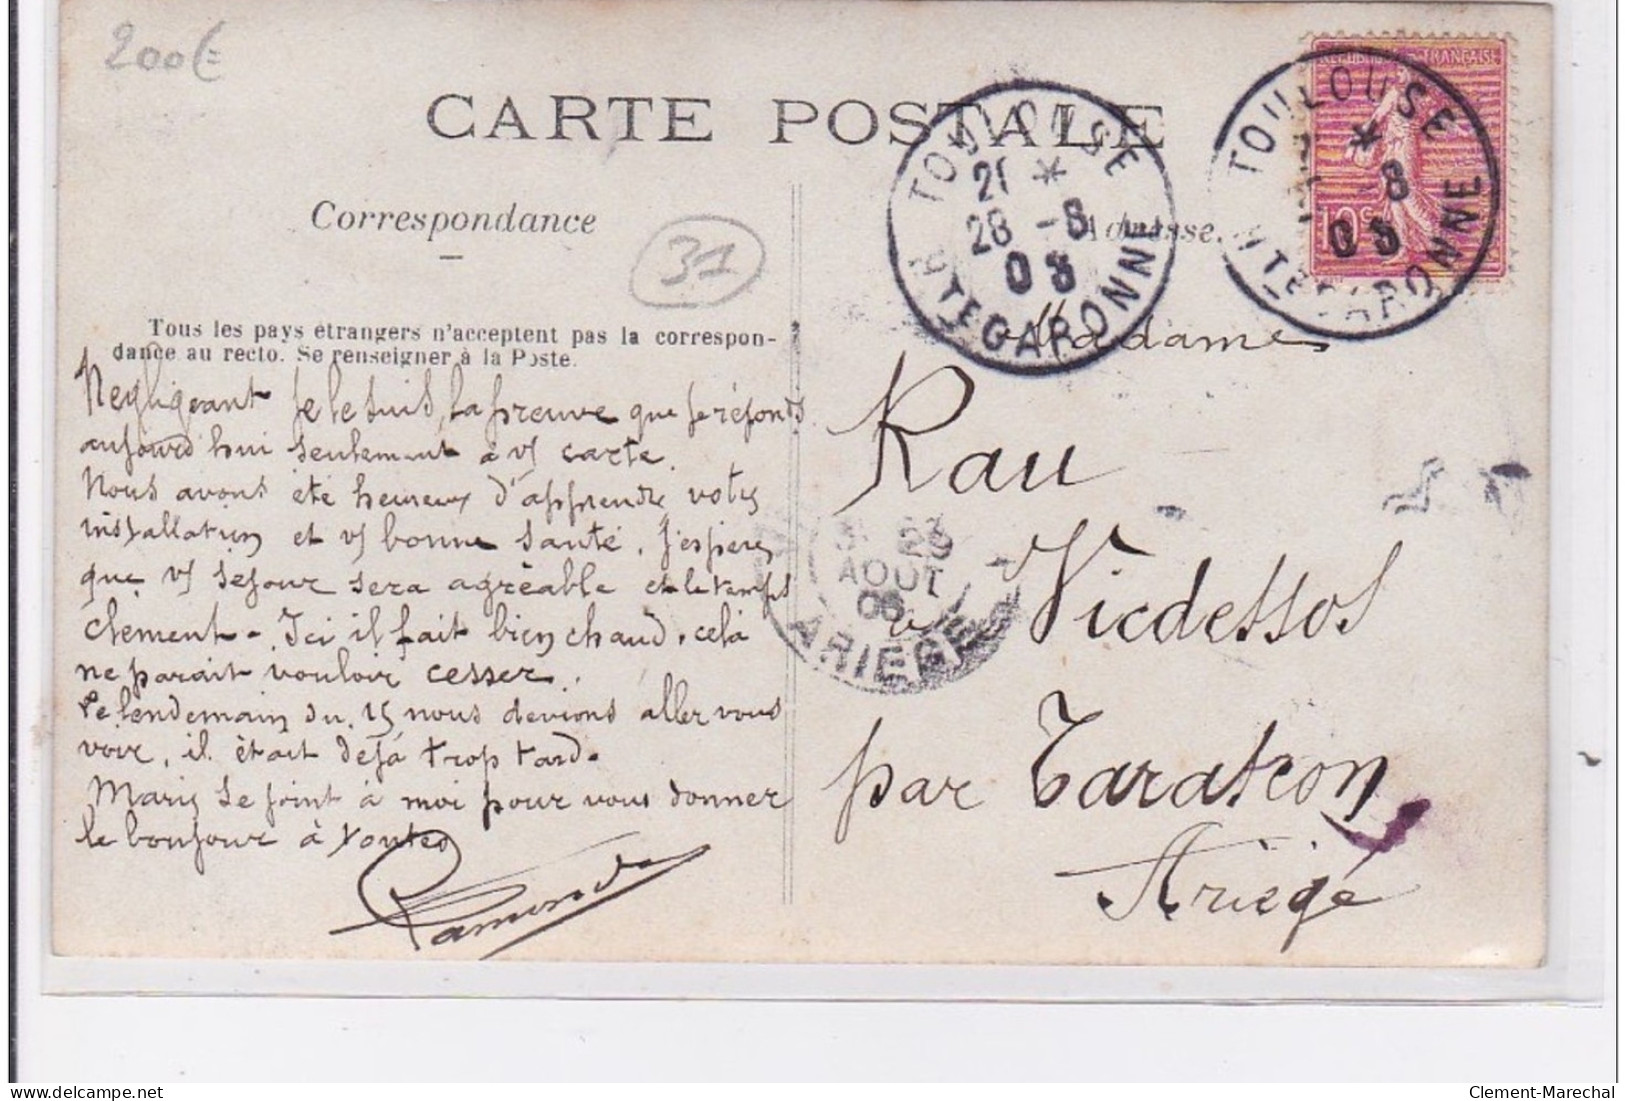 200€
CARTE POSTALE
Correspondance
31
Adresse.
TOULOUSE
21 *
28 -8
05
HTE GARONNE
REPUBLIQUE FRANÇAISE
10c
TOULOUSE
*
-8
05
HTE GARONNE
Tous les pays étrangers n'acceptent pas la correspon-
dance au recto. Se renseigner à la Poste.
Negligeant je le suis, la preuve que je réponds
aujourd hui seulement à v/ carte.
Nous avons été heureux d'apprendre votre
installation et v/ bonne santé. J'espère
que v/ séjour sera agréable et le temps
clement - Ici il fait bien chaud, cela
ne parait vouloir cesser.
Le lendemain du 15 nous devions aller vous
voir, il était déjà trop tard.
Marie se joint à moi pour vous donner
le bonjour à toutes
Madames
Rau
29
AOUT
05
ARIEGE
à Vicdessos
par Tarascon
Ariège
www.delcampe.net
Clement-Marechal